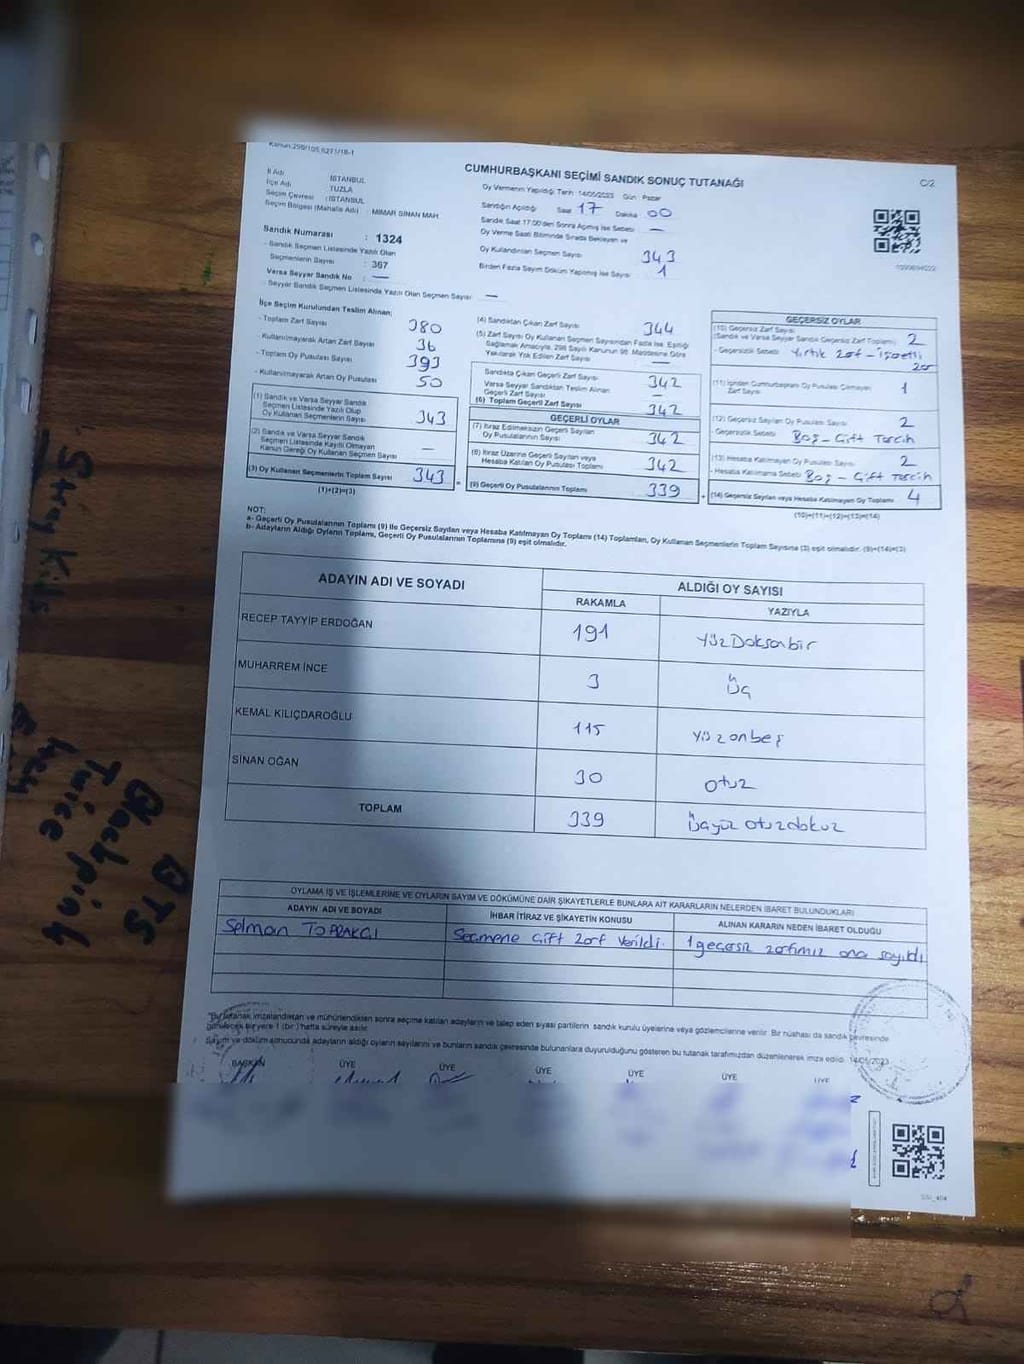 Kanun:298/105,6271/18-1
CUMHURBAŞKANI SEÇİMİ SANDIK SONUÇ TUTANAĞI
C/2
İl Adı : İSTANBUL
İlçe Adı : TUZLA
Seçim Çevresi : İSTANBUL
Seçim Bölgesi (Mahalle Adı) : MİMAR SİNAN MAH.
Oy Vermenin Yapıldığı Tarih: 14/05/2023 Gün : Pazar
Sandığın Açıldığı Saat 17 Dakika 00
Sandık Saat 17:00'den Sonra Açılmış İse Sebebi: —
Oy Verme Saati Bitiminde Sırada Bekleyen ve
Oy Kullandırılan Seçmen Sayısı 343
Birden Fazla Sayım Döküm Yapılmış İse Sayısı 1
Sandık Numarası : 1324
- Sandık Seçmen Listesinde Yazılı Olan
Seçmenlerin Sayısı : 367
Varsa Seyyar Sandık No : —
- Seyyar Sandık Seçmen Listesinde Yazılı Olan Seçmen Sayısı: —
İlçe Seçim Kurulundan Teslim Alınan;
- Toplam Zarf Sayısı 380
- Kullanılmayarak Artan Zarf Sayısı 36
- Toplam Oy Pusulası Sayısı 393
- Kullanılmayarak Artan Oy Pusulası 50
(1) Sandık ve Varsa Seyyar Sandık
Seçmen Listesinde Yazılı Olup
Oy Kullanan Seçmenlerin Sayısı 343
(2) Sandık ve Varsa Seyyar Sandık
Seçmen Listesinde Kayıtlı Olmayan
Kanun Gereği Oy Kullanan Seçmen Sayısı —
(3) Oy Kullanan Seçmenlerin Toplam Sayısı 343
(1)+(2)=(3)
(4) Sandıktan Çıkan Zarf Sayısı 344
(5) Zarf Sayısı Oy Kullanan Seçmen Sayısından Fazla İse, Eşitliği
Sağlamak Amacıyla, 298 Sayılı Kanunun 98. Maddesine Göre
Yakılarak Yok Edilen Zarf Sayısı —
Sandıkta Çıkan Geçerli Zarf Sayısı 342
Varsa Seyyar Sandıktan Teslim Alınan
Geçerli Zarf Sayısı —
(6) Toplam Geçerli Zarf Sayısı 342
GEÇERLİ OYLAR
(7) İtiraz Edilmeksizin Geçerli Sayılan
Oy Pusulalarının Sayısı 342
(8) İtiraz Üzerine Geçerli Sayılan veya
Hesaba Katılan Oy Pusulası Toplamı 342
(9) Geçerli Oy Pusulalarının Toplamı 339
GEÇERSİZ OYLAR
(10) Geçersiz Zarf Sayısı
(Sandık ve Varsa Seyyar Sandık Geçersiz Zarf Toplamı) 2
- Geçersizlik Sebebi: Yırtık zarf - işaretli
zarf
(11) İçinden Cumhurbaşkanı Oy Pusulası Çıkmayan
Zarf Sayısı 1
(12) Geçersiz Sayılan Oy Pusulası Sayısı 2
- Geçersizlik Sebebi : Boş - Çift Tercih
(13) Hesaba Katılmayan Oy Pusulası Sayısı 2
- Hesaba Katılmama Sebebi: Boş - Çift Tercih
(14) Geçersiz Sayılan veya Hesaba Katılmayan Oy Toplamı 4
(10)+(11)+(12)+(13)=(14)
NOT:
a- Geçerli Oy Pusulalarının Toplamı (9) ile Geçersiz Sayılan veya Hesaba Katılmayan Oy Toplamı (14) Toplamları, Oy Kullanan Seçmenlerin Toplam Sayısına (3) eşit olmalıdır. (9)+(14)=(3)
b- Adayların Aldığı Oyların Toplamı, Geçerli Oy Pusulalarının Toplamına (9) eşit olmalıdır.
ADAYIN ADI VE SOYADI
ALDIĞI OY SAYISI
RAKAMLA YAZIYLA
RECEP TAYYİP ERDOĞAN 191 YüzDoksanbir
MUHARREM İNCE 3 Üç
KEMAL KILIÇDAROĞLU 115 Yüzonbeş
SİNAN OĞAN 30 otuz
TOPLAM 339 Üçyüz otuzdokuz
OYLAMA İŞ VE İŞLEMLERİNE VE OYLARIN SAYIM VE DÖKÜMÜNE DAİR ŞİKAYETLERLE BUNLARA AİT KARARLARIN NELERDEN İBARET BULUNDUKLARI
ADAYIN ADI VE SOYADI İHBAR İTİRAZ VE ŞİKAYETİN KONUSU ALINAN KARARIN NEDEN İBARET OLDUĞU
Selman TOPRAKÇI Seçmene Çift zarf Verildi. 1 geçersiz zarfımız ona sayıldı
*Bu tutanak imzalandıktan ve mühürlendikten sonra seçime katılan adayların ve talep eden siyasi partilerin sandık kurulu üyelerine veya gözlemcilerine verilir. Bir nüshası da sandık çevresinde
görülecek bir yere 1 (bir) hafta süreyle asılır.
Sayım ve döküm sonucunda adayların aldığı oyların sayılarını ve bunların sandık çevresinde bulunanlara duyurulduğunu gösteren bu tutanak tarafımızdan düzenlenerek imza edildi. 14/05/2023
BAŞKAN ÜYE ÜYE ÜYE ÜYE ÜYE ÜYE
Stray Kids
Blackpink
BTS
Twice